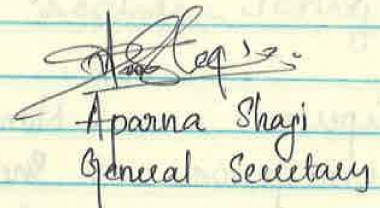 Aparna Shaji
General Secretary